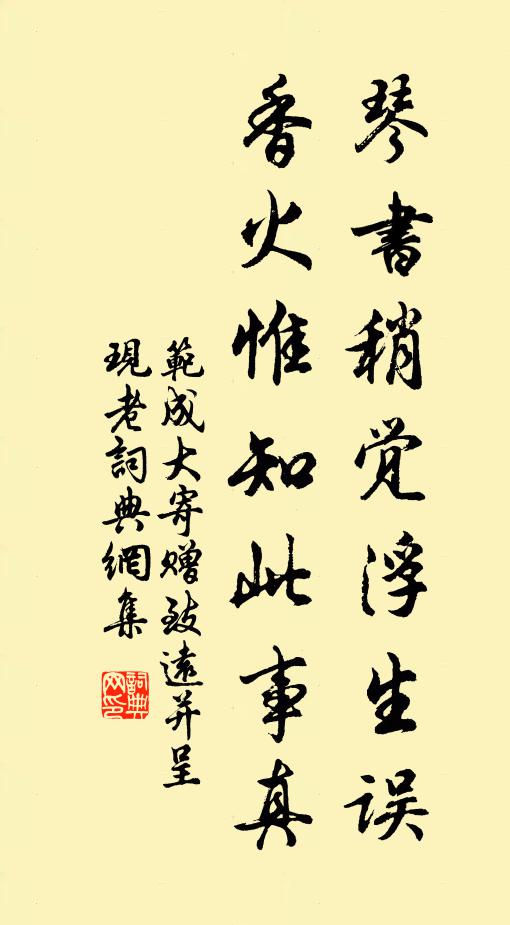 琴書稍覺浮生误
香火惟知此事真
範成大寄赠致遠并呈
現老詞典網集
詞典網印